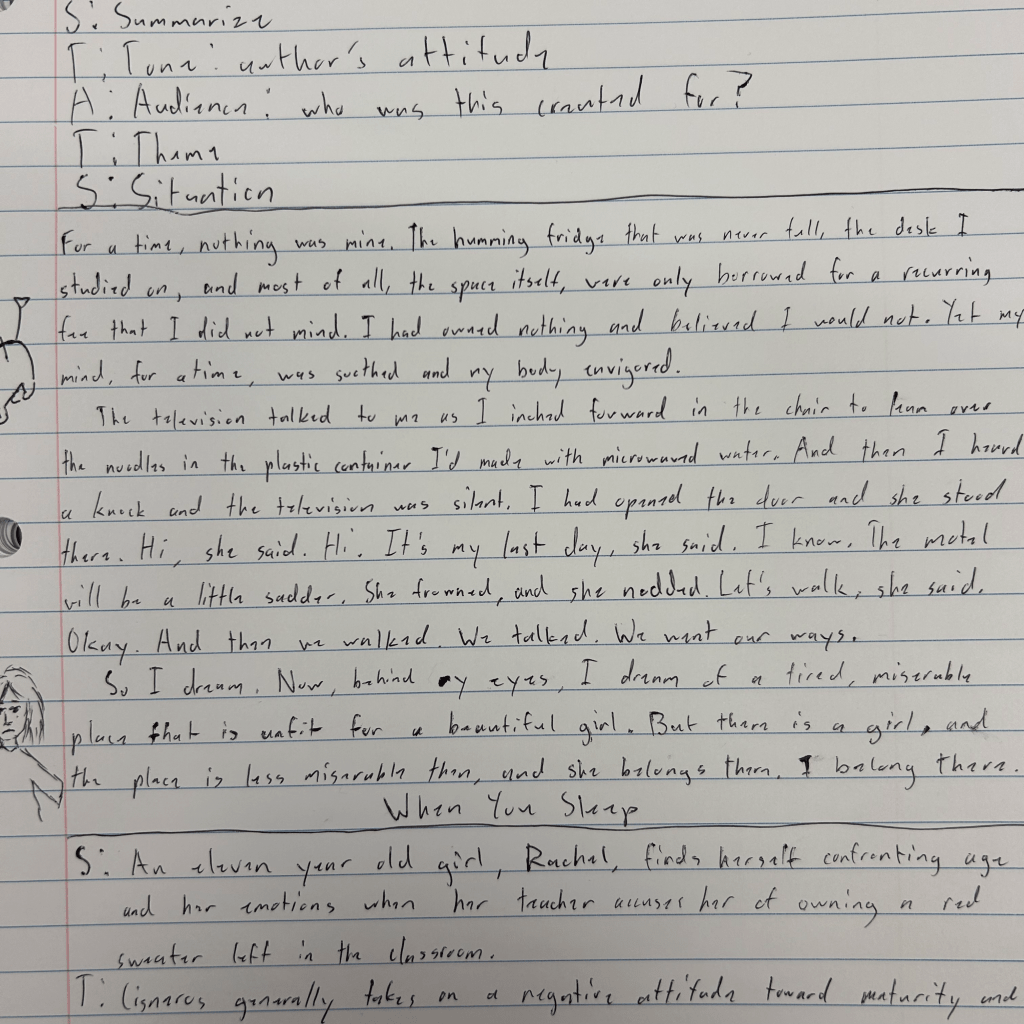 S: Summarize
T: Tone: author's attitude
A: Audience: who was this created for?
T: Theme
S: Situation
For a time, nothing was mine. The humming fridge that was never full, the desk I
studied on, and most of all, the space itself, were only borrowed for a recurring
fee that I did not mind. I had owned nothing and believed I would not. Yet my
mind, for a time, was soothed and my body envigored.
The television talked to me as I inched forward in the chair to lean over
the noodles in the plastic container I'd made with microwaved water. And then I heard
a knock and the television was silent. I had opened the door and she stood
there. Hi, she said. Hi. It's my last day, she said. I know. The motel
will be a little sadder. She frowned, and she nodded. Let's walk, she said.
Okay. And then we walked. We talked. We went our ways.
So I dream. Now, behind my eyes, I dream of a tired, miserable
place that is unfit for a beautiful girl. But there is a girl, and
the place is less miserable then, and she belongs there. I belong there.
When You Sleep
S: An eleven year old girl, Rachel, finds herself confronting age
and her emotions when her teacher accuses her of owning a red
sweater left in the classroom.
T: Cisneros generally takes on a negative attitude toward maturity and